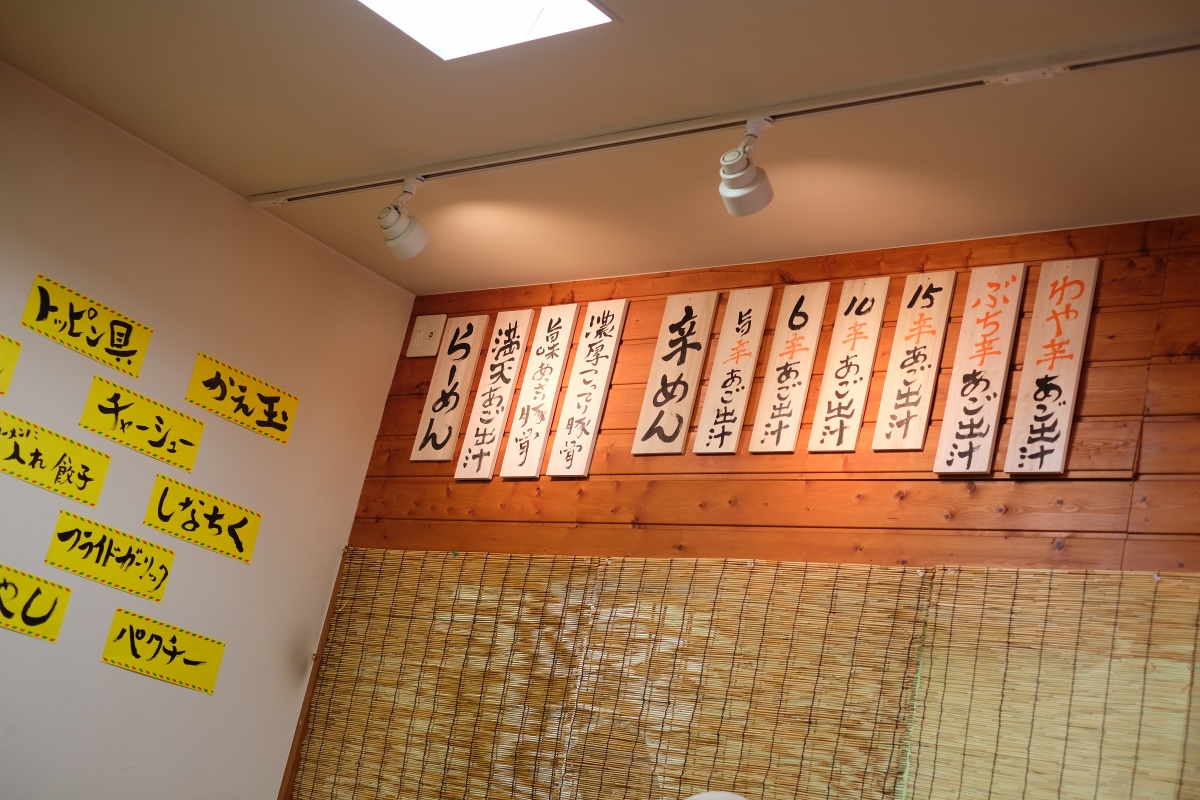 トッピン具
かえ玉
チャーシュー
入れ餃子
しなちく
フライドガーリック
パクチー
らーめん
満天あご出汁
旨味あっさり豚骨
濃厚こってり豚骨
辛めん
旨辛あご出汁
6辛あご出汁
10辛あご出汁
15辛あご出汁
ぶち辛あご出汁
わや辛あご出汁